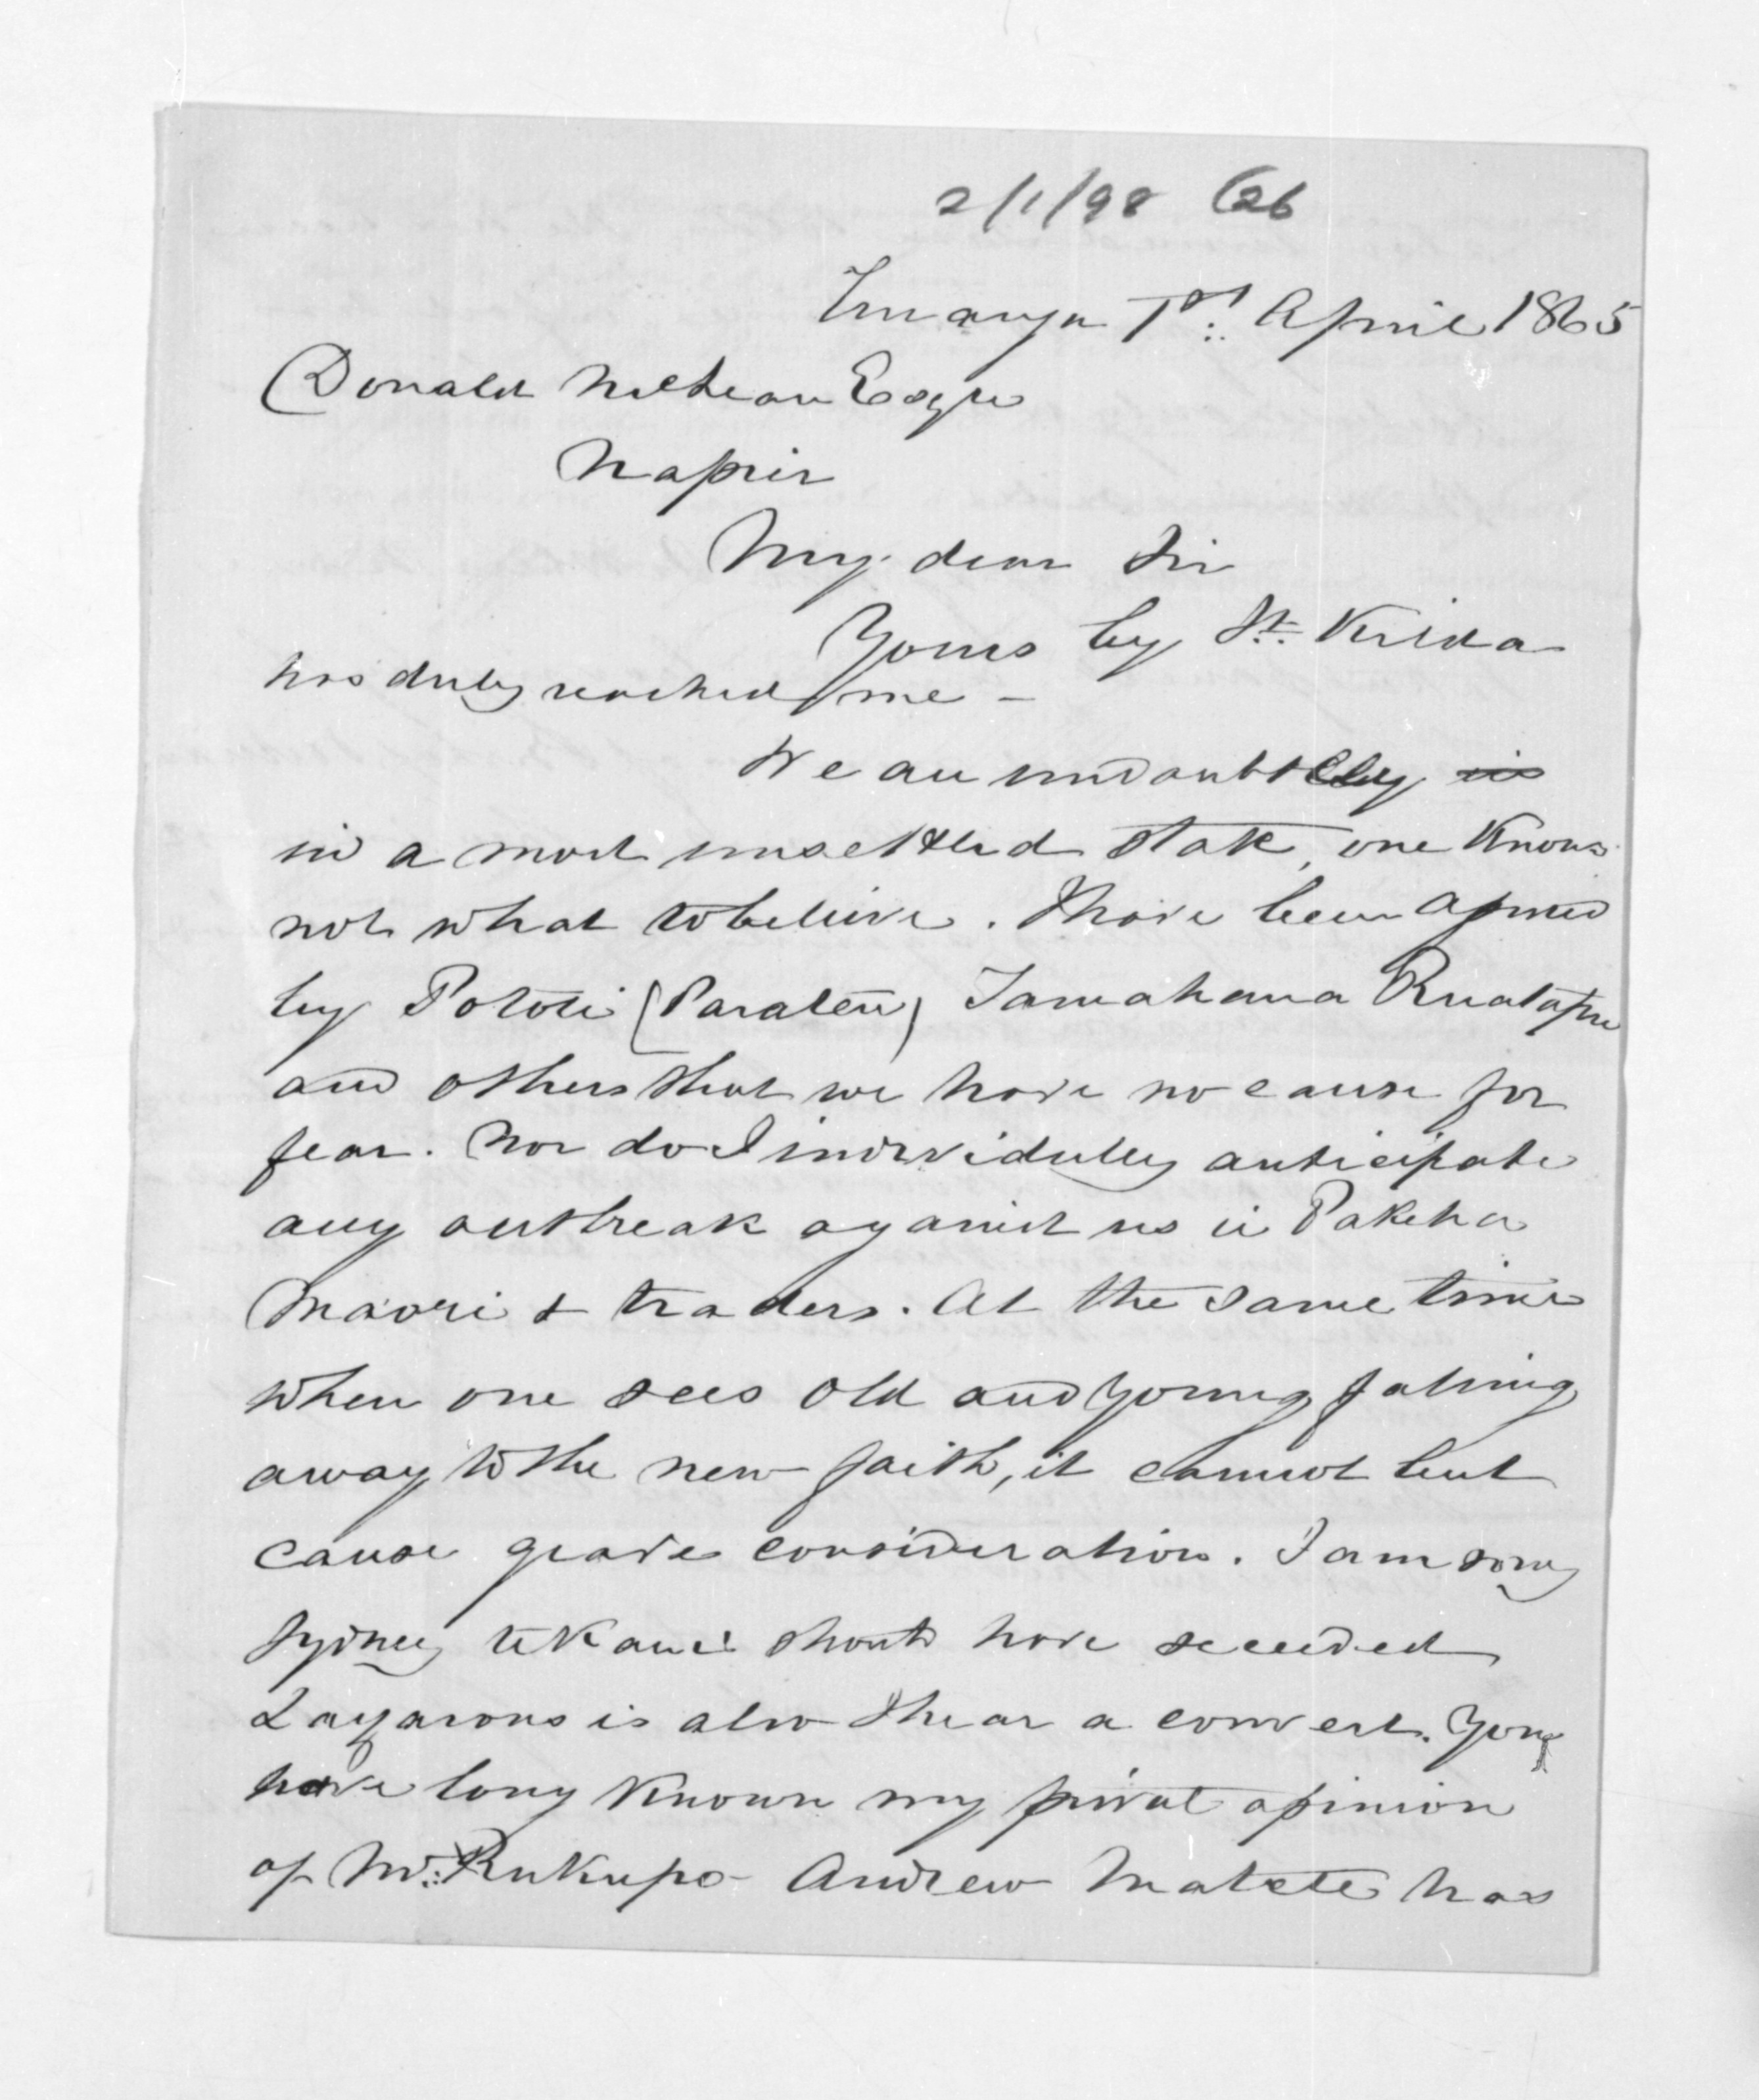 2/1/98 (26
Turanga 1st April 1865
Donald McLean Esqre
Napier
My dear Sir
Yours by St. Kilda
has duly reached me —
We are undoubtedly
in a most unsettled state, one knows
not what to believe. I have been assured
by Pototi (Paratene) Tamahana Ruatapu
and others that we have no cause for
fear. Nor do I individully anticipate
any outbreak against us ie Pakeha
Maori & traders. At the same time
when one sees old and young falling
away to the new faith, it cannot but
cause grave consideration. I am sorry
Sydney te Kani should have seceeded
Lazarous is also I hear a convert. You
have long known my privat opinion
of Mr. Rukupo – Andrew Matete has